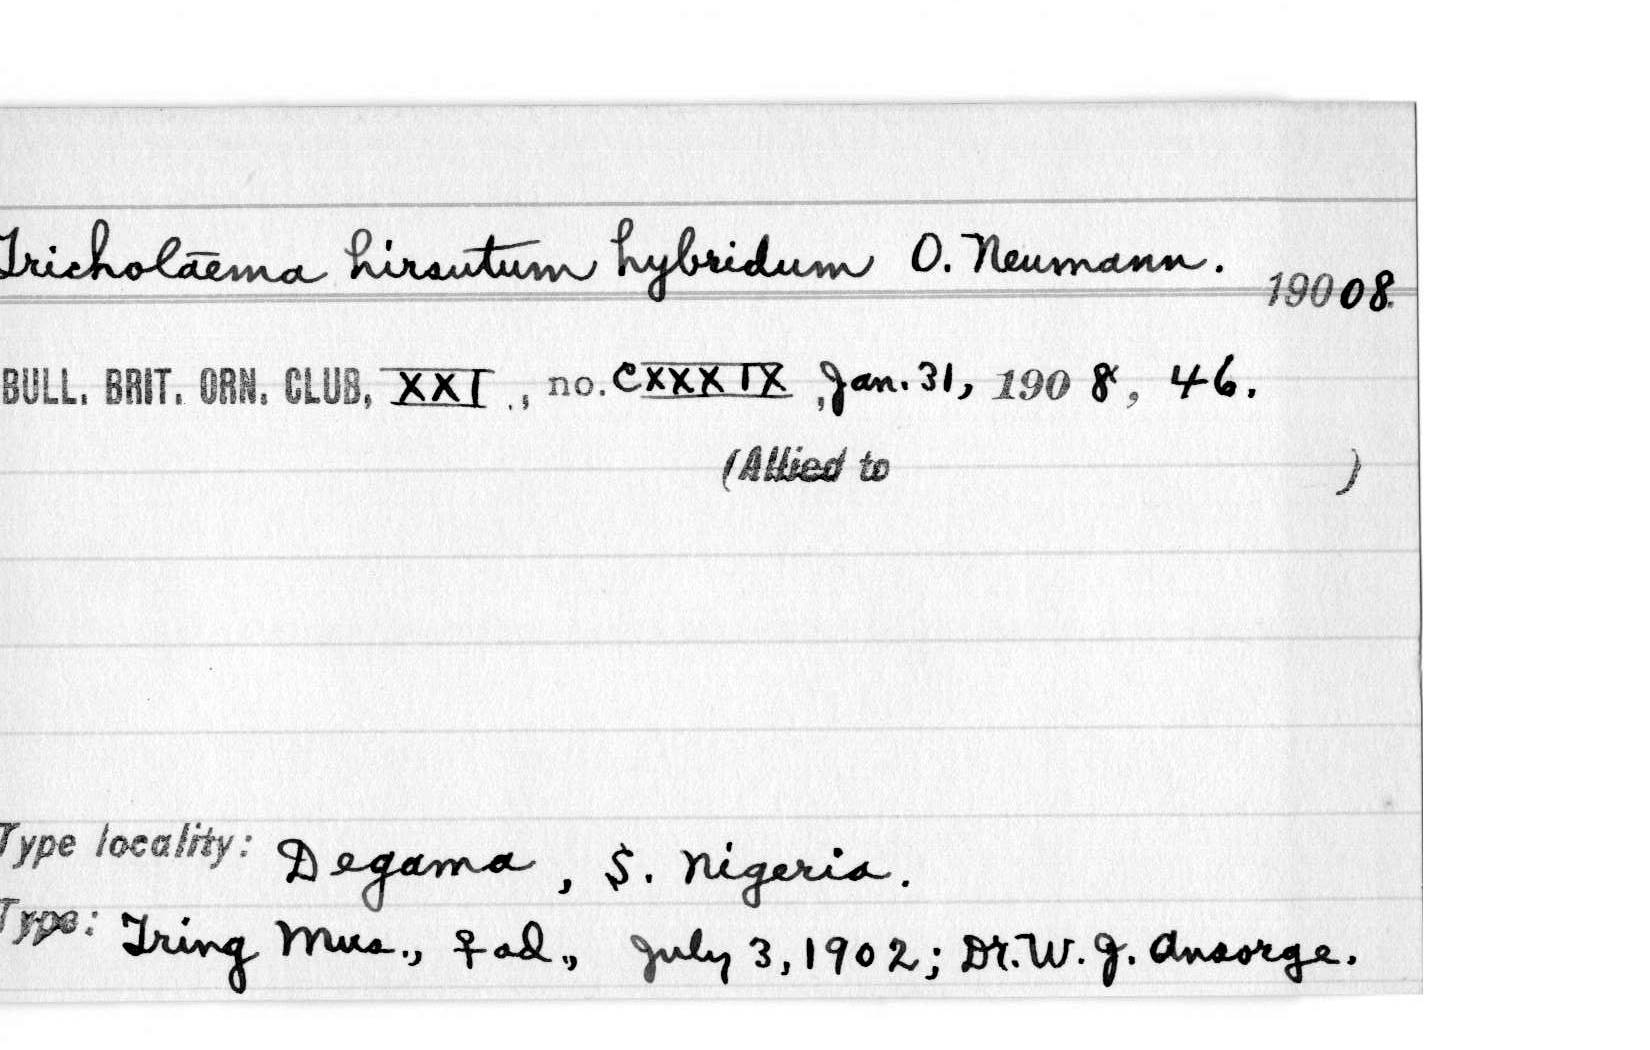 Tricholāema hirsutum hybridum O. Neumann.
19008.
BULL. BRIT. ORN. CLUB, XXI., no. CXXXIX, Jan. 31, 1908, 46.
(Allied to )
Type locality: Degama, S. Nigeria.
Type: Tring Mus., ♀ ad., July 3, 1902; Dr. W. J. Ansorge.